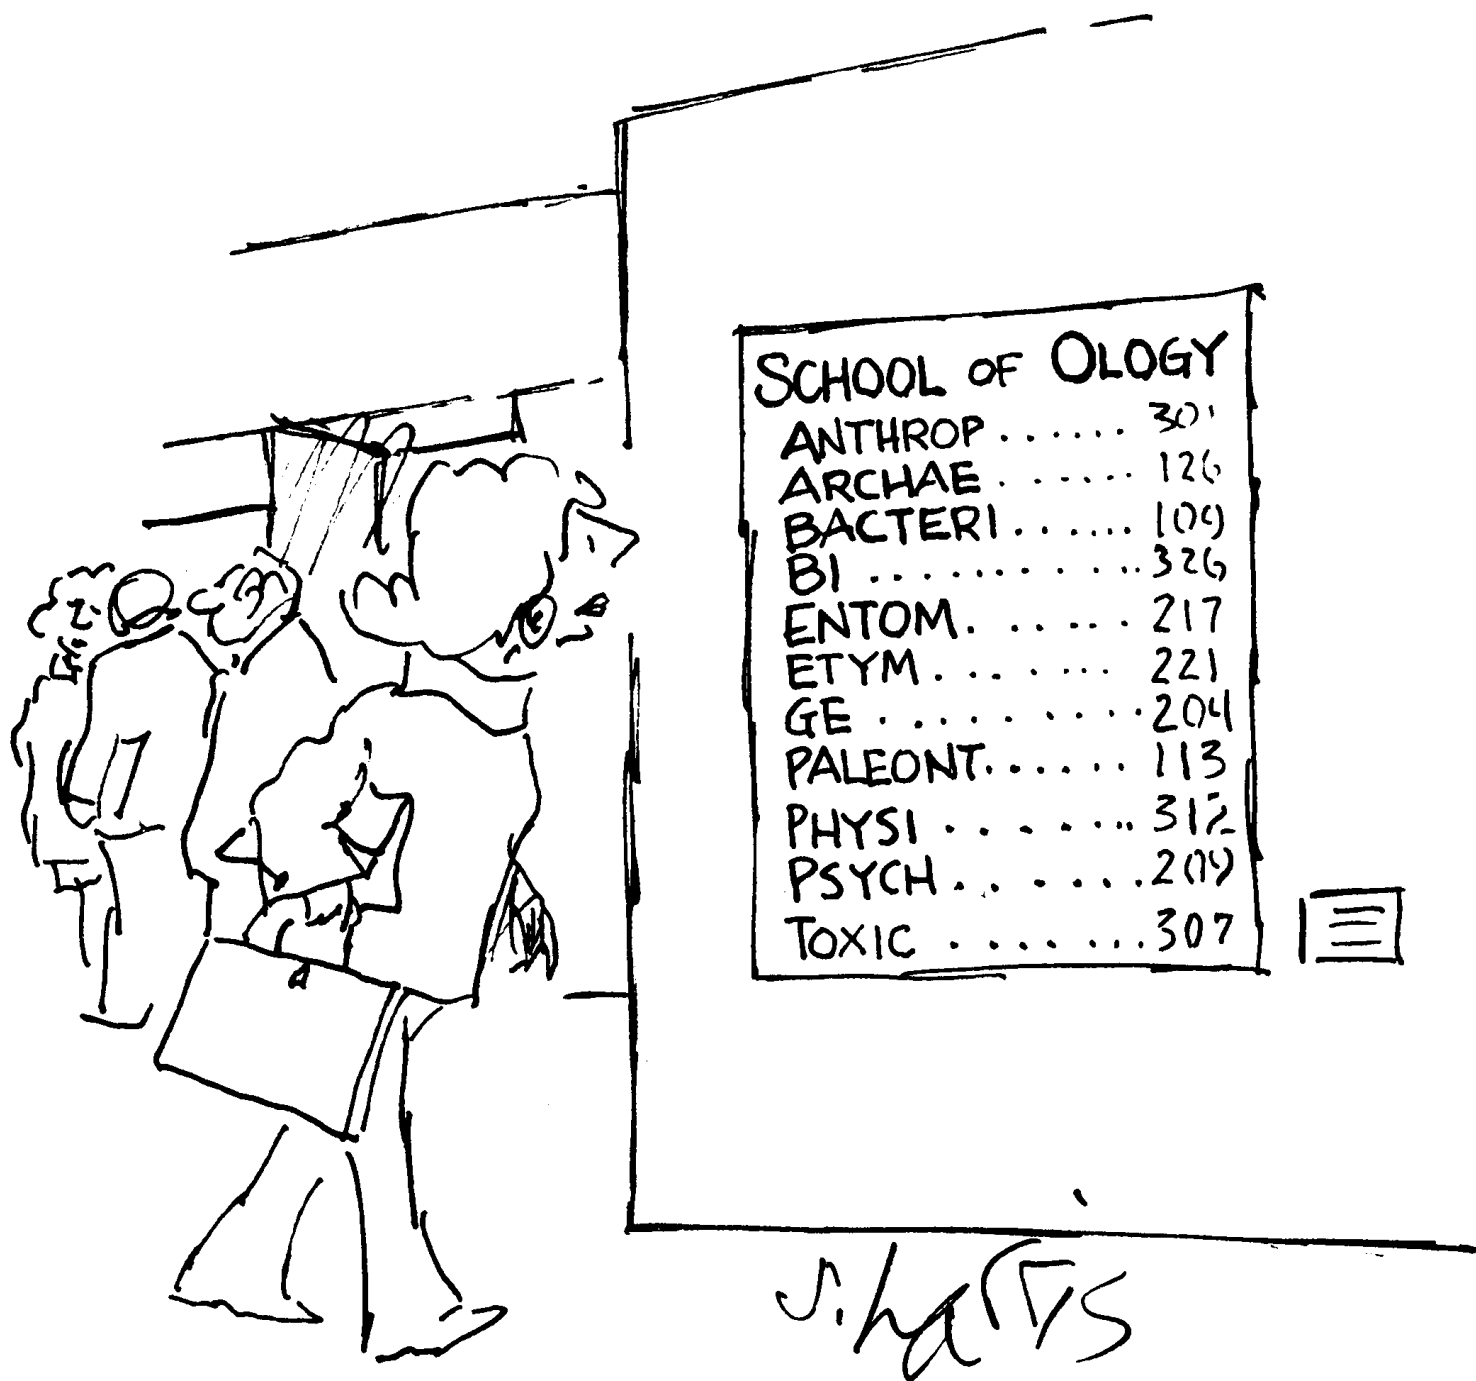 SCHOOL OF OLOGY
ANTHROP ...... 301
ARCHAE ...... 126
BACTERI ...... 109
BI ........... 326
ENTOM ...... 217
ETYM ....... 221
GE ......... 204
PALEONT ...... 113
PHYSI ....... 312
PSYCH ....... 209
TOXIC ....... 307
S. harris